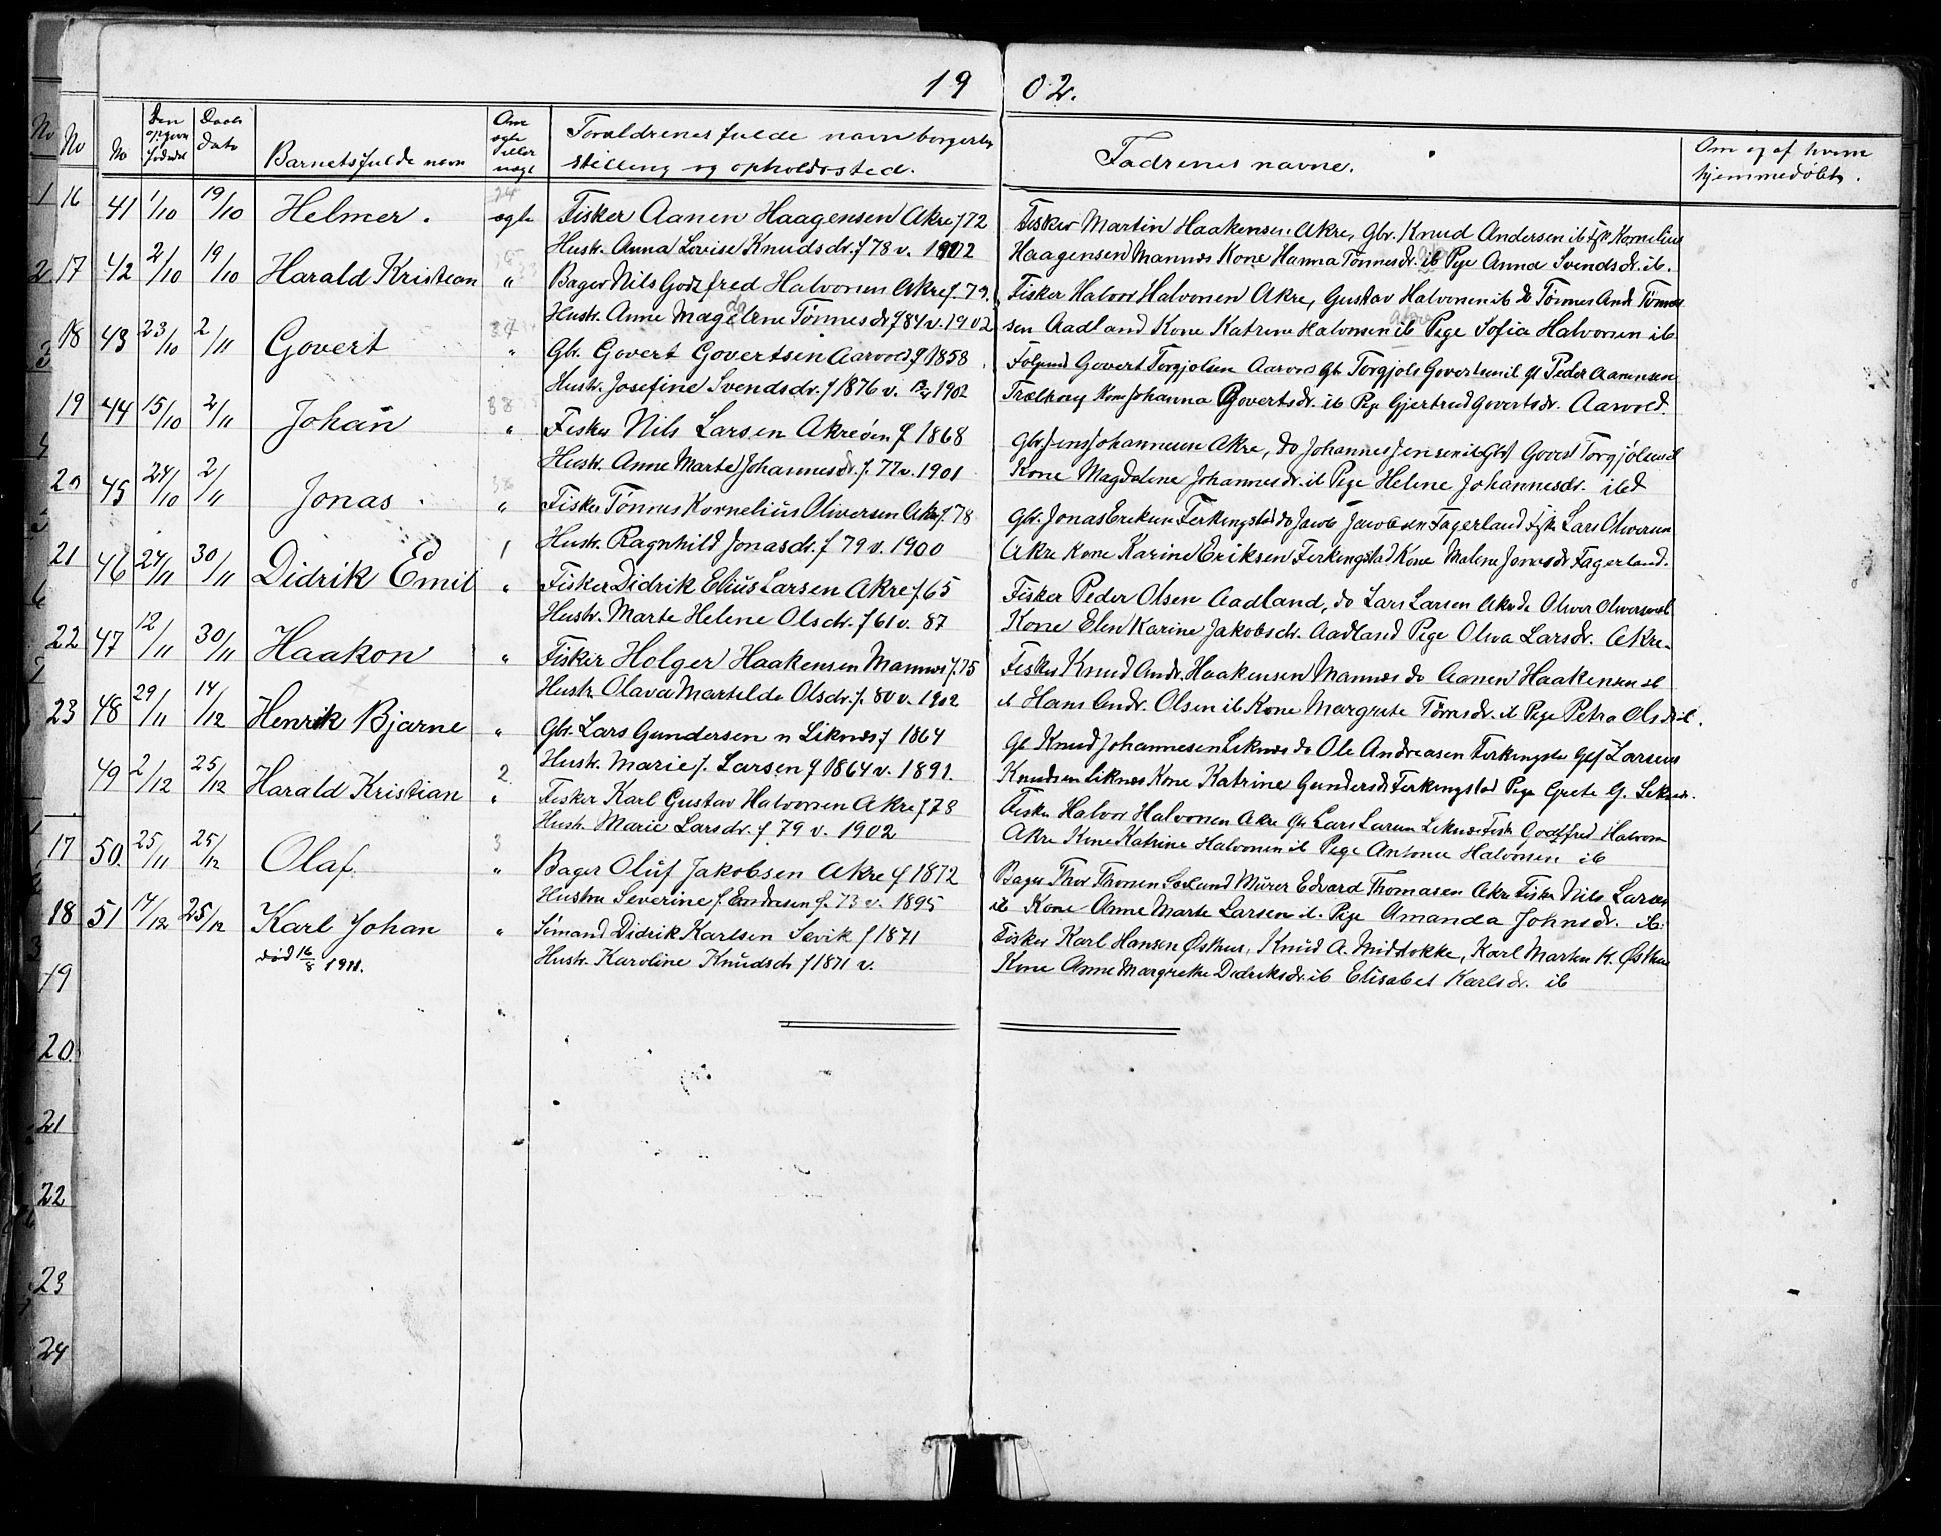 19 02.
No No No Den opgivne fødedel Daabs dato Barnets fulde navn Om ægte eller uægte Forældrenes fulde navn borgerlig
stilling og opholdssted. Fadrenes navne. Om og af hvem
hjemmedøbt.
1 16 41 1/10 19/10 Helmer. ægte Fisker Aanen Haagensen Akre f 72 Fisker Martin Haakensen Akre, Gbr. Knud Andersen ib Kornelius
Hustr. Anna Lovise Knudsdr. f 78 v. 1902 Haagensen Mannes Kone Hanna Tønnesdr. ib Pige Anna Svendsdr. ib.
2 17 42 2/10 19/10 Harald Kristian " Bager Nils Godtfred Halvorsen Akre f. 79. Fisker Halvor Halvorsen Akre, Gustav Halvorsen ib do Tønnes And. Tønnes
Hustr. Anne Magdalene Tønnesdr f 84 v. 1902 sen Aadland Kone Katrine Halvorsen ib Pige Sofia Halvorsen ib
18 43 23/10 2/11 Govert " Gbr. Govert Govertsen Aarvold f 1858 Govert Torgjolsen Aarvold Gb Torgjols Govertsen ib Peder Aanensen
Hustr. Josefine Svendsdr. f 1876 v. 1902 Kone Johanna Govertsdr. ib Pige Gjertrud Govertsdr. Aarvold.
19 44 15/10 2/11 Johan " Fisker Nils Larsen Akreøen f 1868 Gbr Jens Johannesen Akre, do Johannes Jensen ib Govert Torgjolsen
Hustr. Anne Marte Johannesdr. f. 77 v. 1901 Kone Magdalene Johannesdr. ib Pige Helene Johannesdr. ibd
20 45 24/10 2/11 Jonas " Fisker Tønnes Kornelius Oliversen Akre f. 78 Gbr. Jonas Eriksen Ferkingstad do Jacob Jacobsen Fagerland Lars Oliversen
Hustr. Ragnhild Jonasdr. f 79 v. 1900 Akre Kone Karine Eriksen Ferkingstad Kone Malene Jonasdr Fagerland.
21 46 24/11 30/11 Didrik Emil 1 " Fisker Didrik Elius Larsen Akre f. 65 Fisker Peder Olsen Aadland, do Lars Larsen Akre do Oliver Oliversen
Hustr. Marte Helene Olsdr. f 61 v. 87 Kone Elen Karine Jakobsdr. Aadland Pige Oliva Larsdr. Akre.
22 47 12/11 30/11 Haakon " Fisker Holger Haakensen Mannes f. 75 Fisker Knud Andr. Haakensen Mannes do Aanen Haakensen ib
Hustr. Olava Martilde Olsdr. f. 80 v. 1902 Hans Andr. Olsen ib Kone Margrete Tørresdr. ib Pige Petra Olsdr ib.
23 48 29/11 14/12 Henrik Bjarne " Gbr. Lars Gundersen n Liknes f 1864 Gb Knud Johannesen Liknes do Ole Andreasen Ferkingstad Larsens
Hustr. Marie f. Larsen f 1864 v. 1891. Knudsen Liknes Kone Katrine Gundersdr Ferkingstad Pige Grete G. Liknes.
49 2/12 25/12 Harald Kristian 2 " Fisker Karl Gustav Halvorsen Akre f 78 Fisker Halvor Halvorsen Akre Gb Lars Larsen Liknes Fisk Godtfred Halvorsen
Hustr. Marie Larsdr. f 79 v. 1902 Akre Kone Katrine Halvorsen ib Pige Antonie Halvorsen ib
17 50. 25/11 25/12 Olaf. 3 " Bager Oluf Jakobsen Akre f 1872 Bager Thor Thorsen Murer Edvard Thomasen Akre Fisker Nils Larsen
Hustru Severine f. Endresen f. 73 v. 1895 ib Kone Anne Marte Larsen ib. Pige Amanda Johnsdr. ib.
18 51 17/12 25/12 Karl Johan " Sømand Didrik Karlsen Sevik f 1871 Fisker Karl Hansen Østhus, Knud A. Midtbokke, Karl Marten K. Østhus
død 16/8 1911. Hustr. Karoline Knudsdr f 1871 v. Kone Anne Margrethe Didriksdr. ib Elisabet Karlsdr. ib
19
20
21
22
23
24